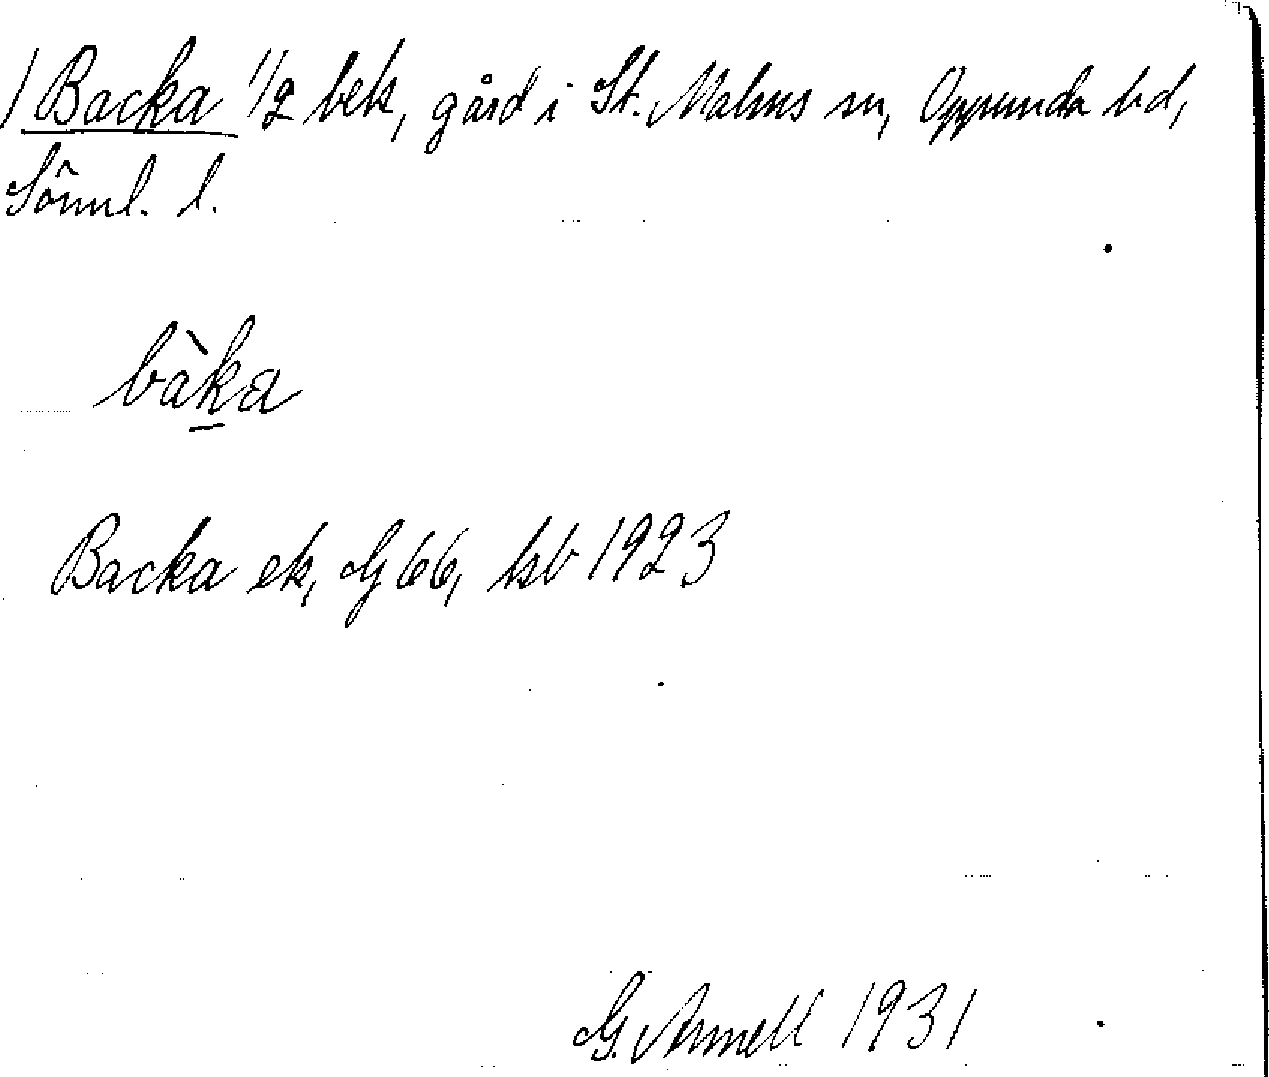 / Backa 1/2 bek, gård i St. Malms sn, Oppunda hd,
Sörml. l.
bàka
Backa ek, G 66, hsb 1923
G. Armell 1931